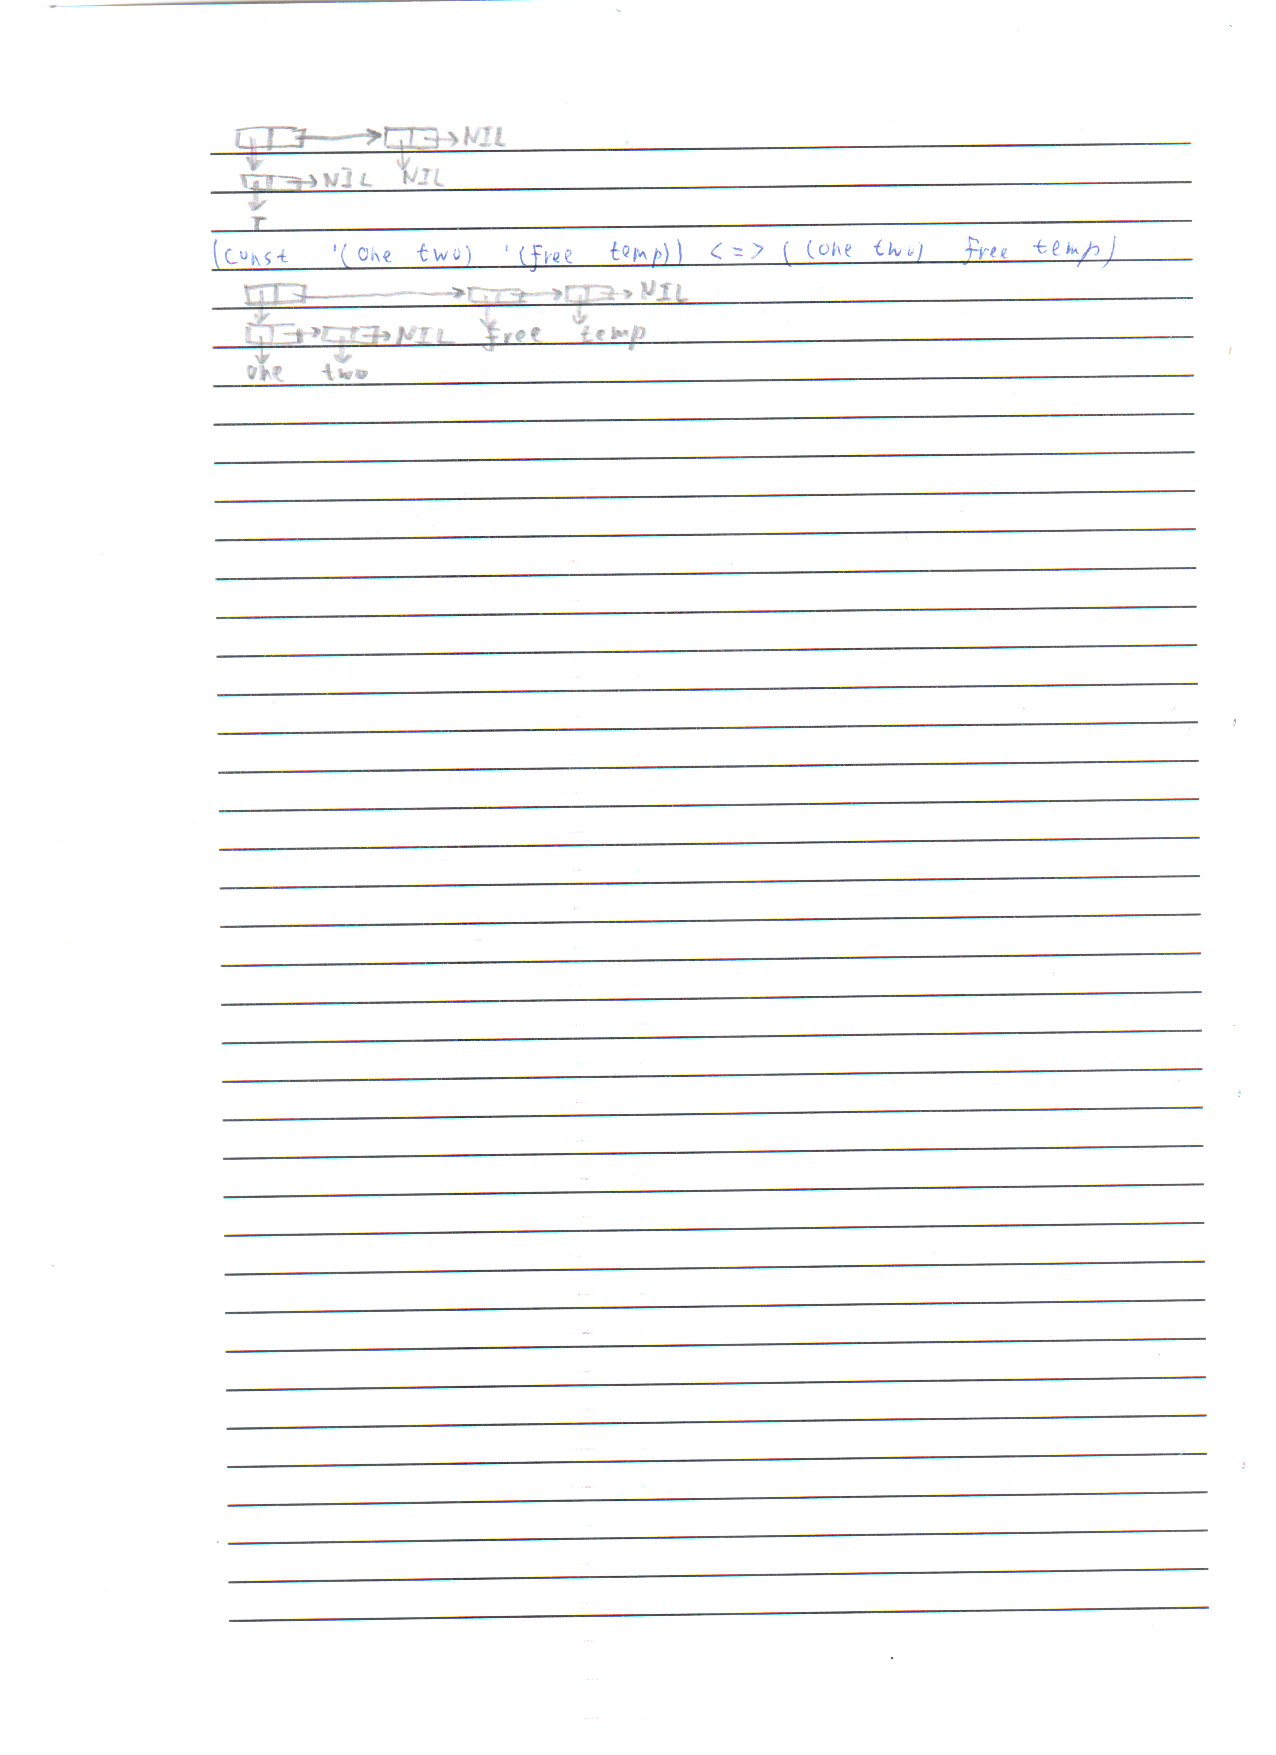 → NIL
→ NIL NIL
T
(const '(one two) '(free temp)) <=> ((one two) free temp)
→ NIL
→ NIL free temp
one two